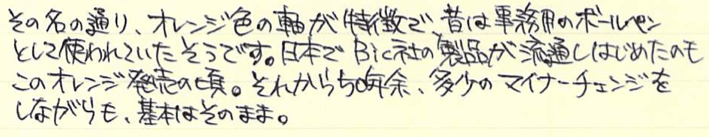 その名の通り、オレンジ色の軸が特徴で、昔は事務用のボールペン
として使われていたそうです。日本でBic社の製品が流通しはじめたのも
このオレンジ発売の頃。それから50年余、多少のマイナーチェンジを
しながらも、基本はそのまま。